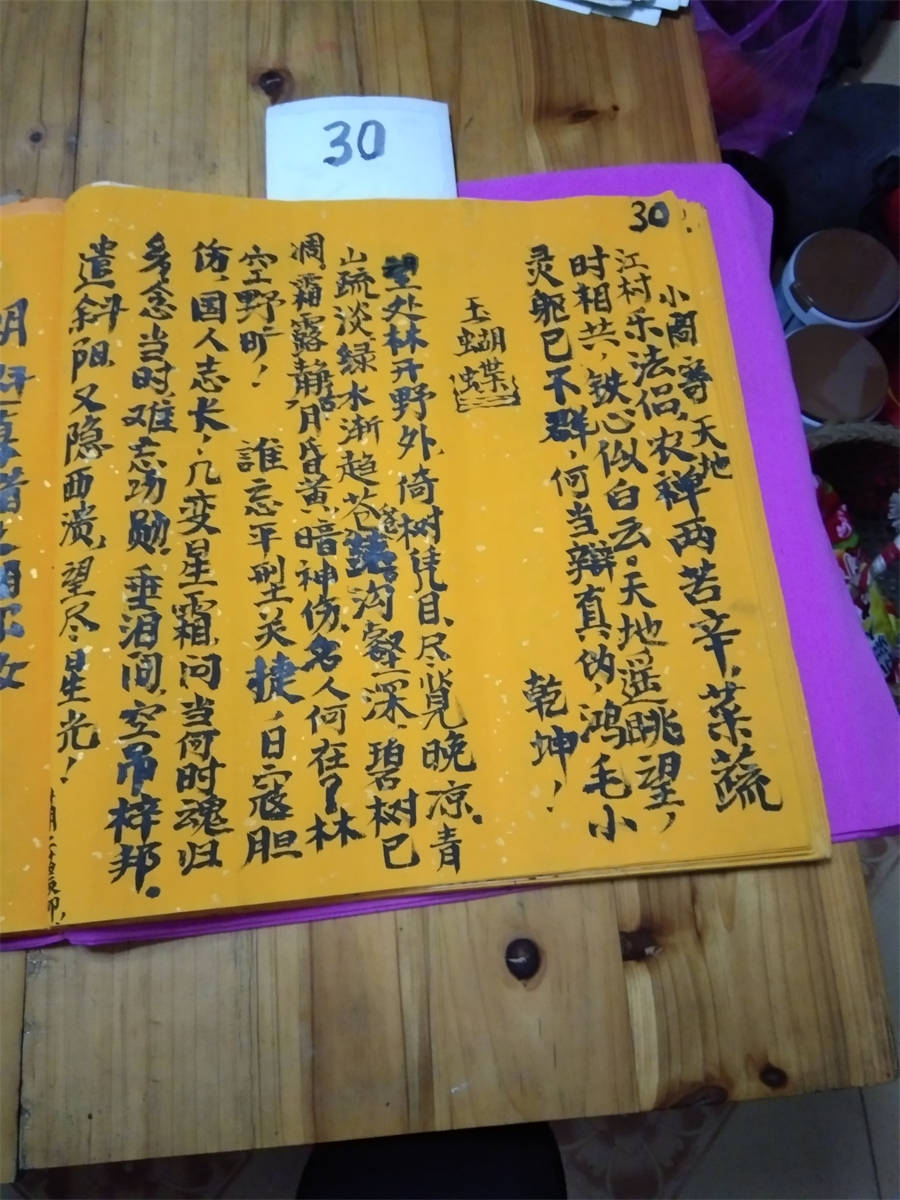 30
30
小阁寄天地
江村乐法侣，农禅两苦辛，菜蔬
时相共，铁心似白云。天地遥眺望，
灵躯已不群，何当辩真伪，鸿毛小
乾坤！
玉蝴蝶
望处林开野外，倚树凭目、尽览晚凉。青
山疏淡，绿水渐趋苍 沟壑深，碧树已
凋，霜露静，月昏黄，暗神伤，名人何在？林
空野旷！
誰忘平型关捷，日寇胆
伤，国人志长，几变星霜，问当何时魂归
多念当时，难忘功勋，垂泪间，空吊梓邦。
遣斜阳又隐西 ，望尽星光！